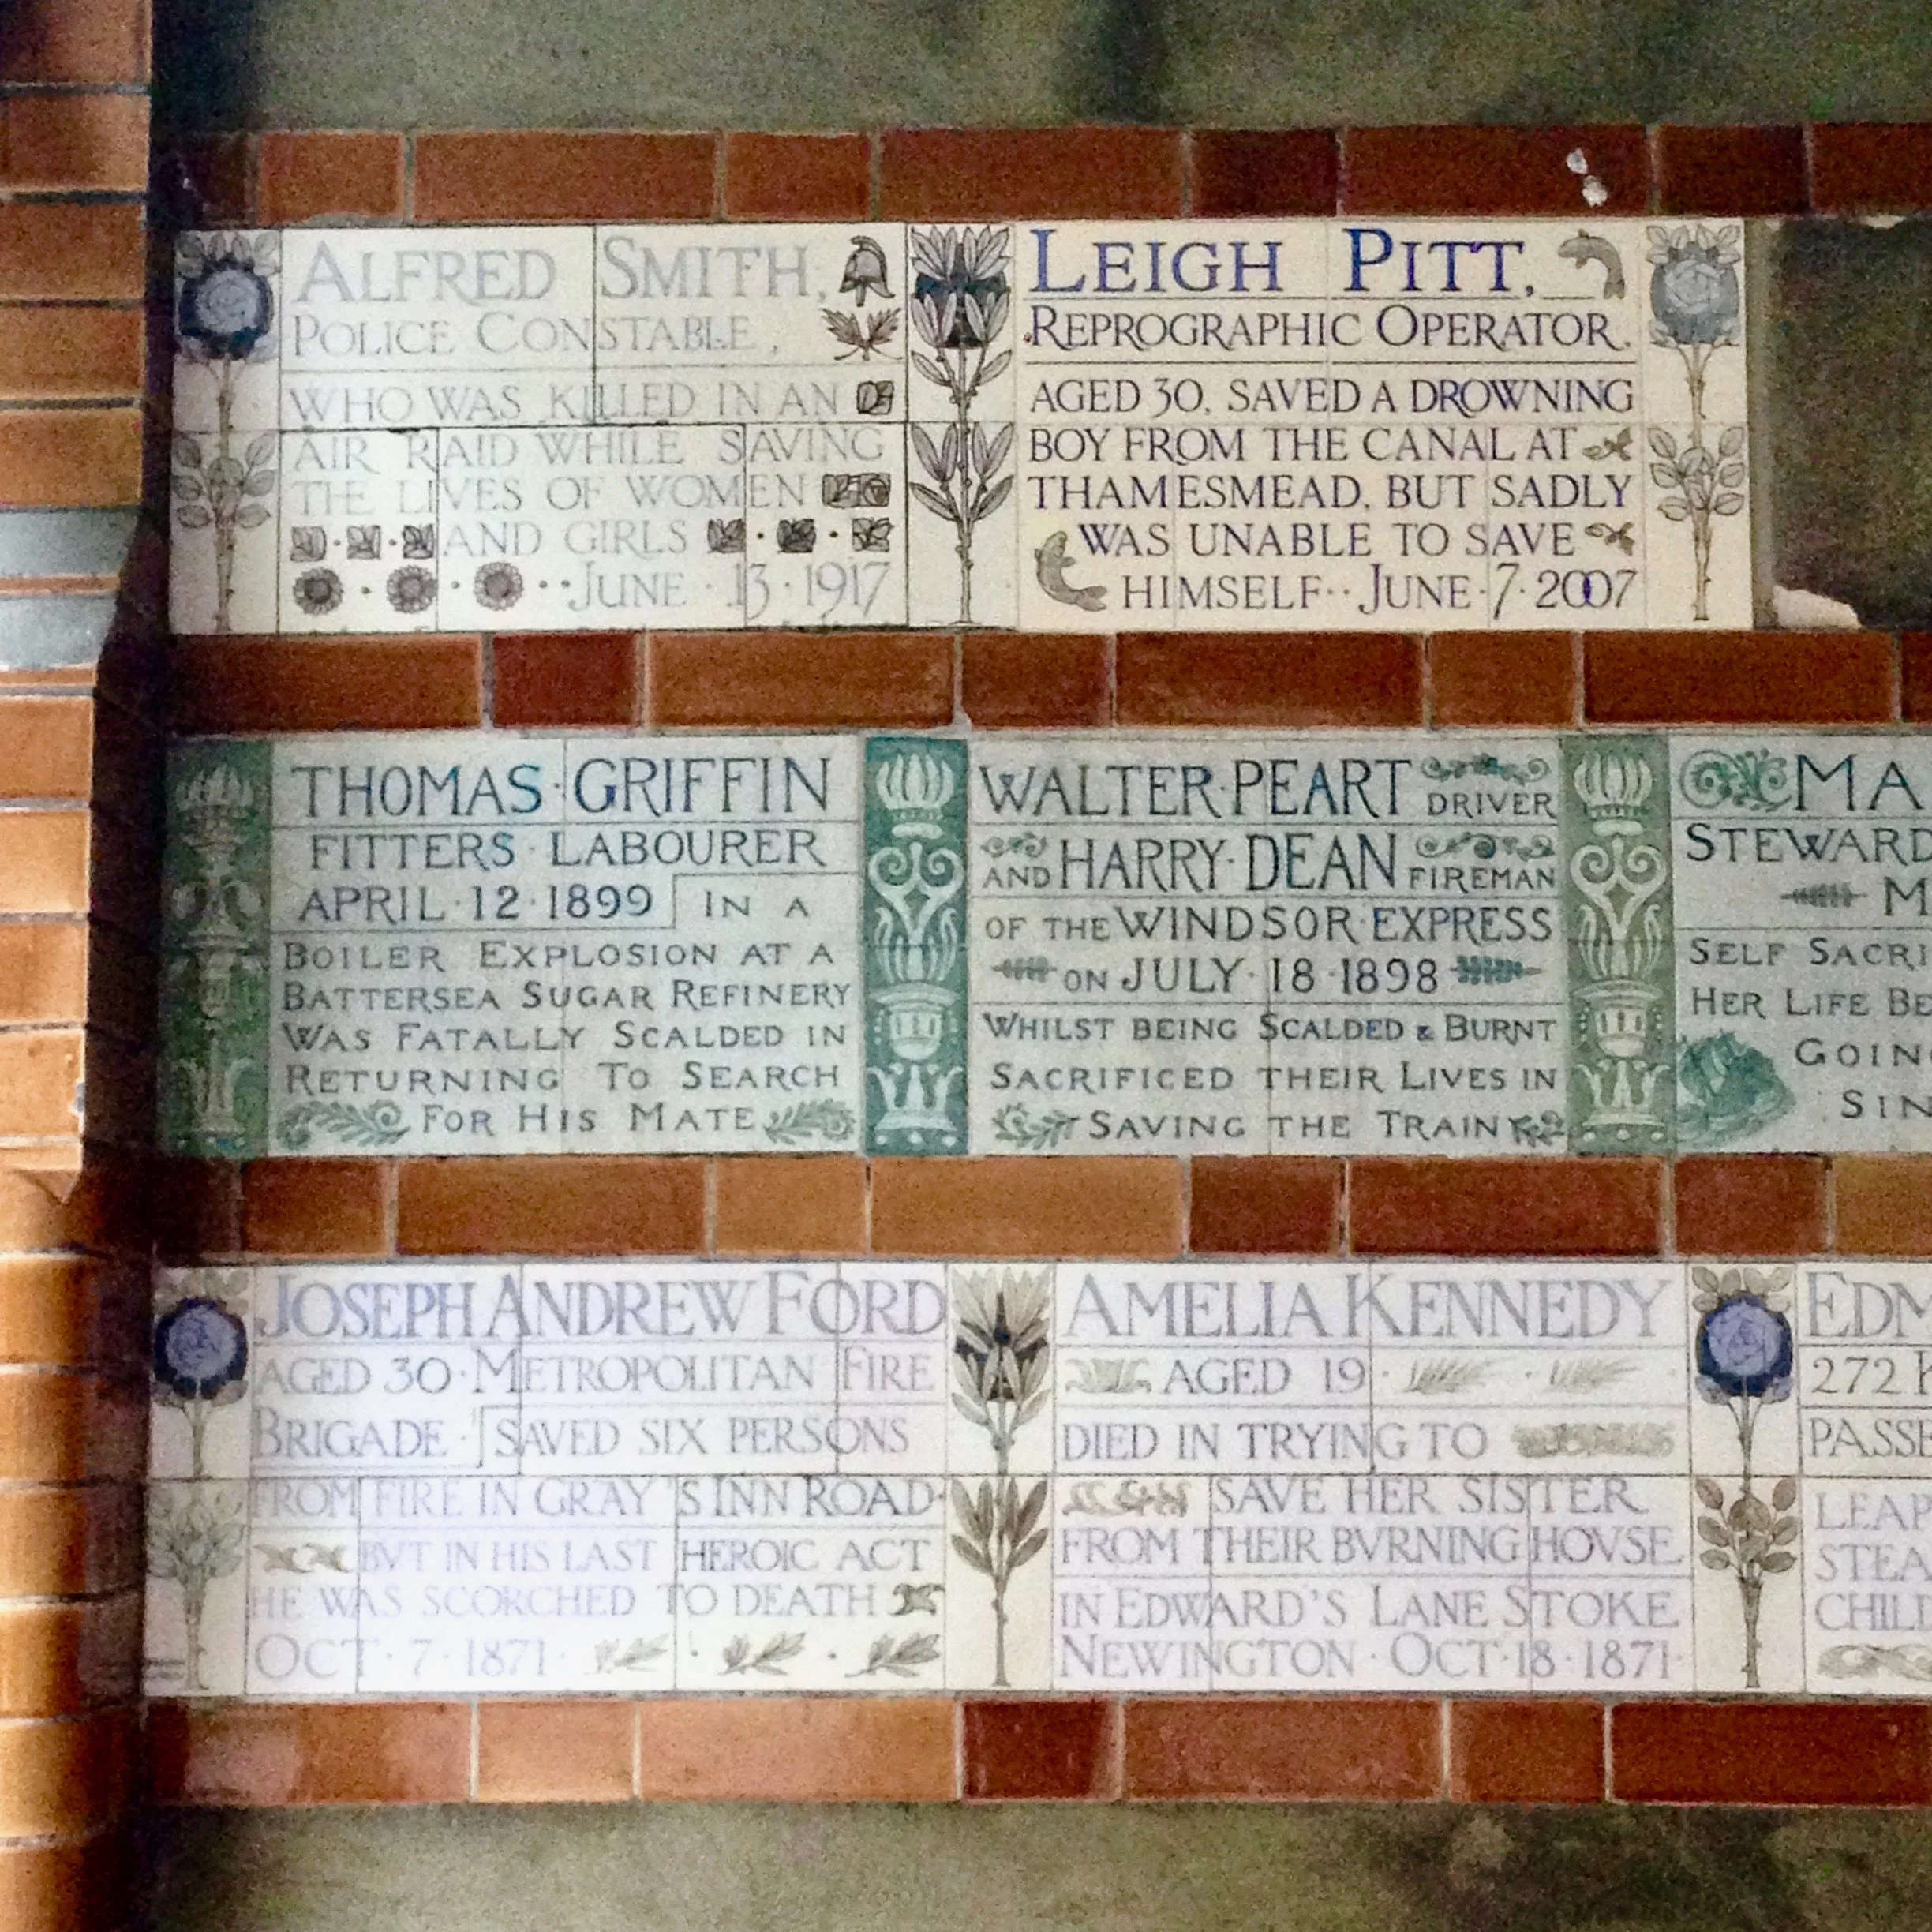 ALFRED SMITH,
POLICE CONSTABLE,
WHO WAS KILLED IN AN
AIR RAID WHILE SAVING
THE LIVES OF WOMEN
AND GIRLS
JUNE · 13 · 1917
LEIGH PITT,
REPROGRAPHIC OPERATOR,
AGED 30, SAVED A DROWNING
BOY FROM THE CANAL AT
THAMESMEAD, BUT SADLY
WAS UNABLE TO SAVE
HIMSELF · · JUNE · 7 · 2007
THOMAS · GRIFFIN
FITTERS · LABOURER
APRIL · 12 · 1899 IN A
BOILER EXPLOSION AT A
BATTERSEA SUGAR REFINERY
WAS FATALLY SCALDED IN
RETURNING TO SEARCH
FOR HIS MATE
WALTER · PEART DRIVER
AND HARRY · DEAN FIREMAN
OF THE WINDSOR EXPRESS
ON JULY · 18 · 1898
WHILST BEING SCALDED & BURNT
SACRIFICED THEIR LIVES IN
SAVING THE TRAIN
MA
STEWARD
M
SELF SACRI
HER LIFE BE
GOIN
SIN
JOSEPH ANDREW FORD
AGED 30 · METROPOLITAN FIRE
BRIGADE · SAVED SIX PERSONS
FROM FIRE IN GRAY'S INN ROAD ·
BVT IN HIS LAST HEROIC ACT
HE WAS SCORCHED TO DEATH
OCT · 7 · 1871 ·
AMELIA KENNEDY
AGED 19 ·
DIED IN TRYING TO
SAVE HER SISTER
FROM THEIR BVRNING HOVSE
IN EDWARD'S LANE STOKE
NEWINGTON · OCT · 18 · 1871 ·
EDM
272
PASSE
LEAP
STEA
CHIL